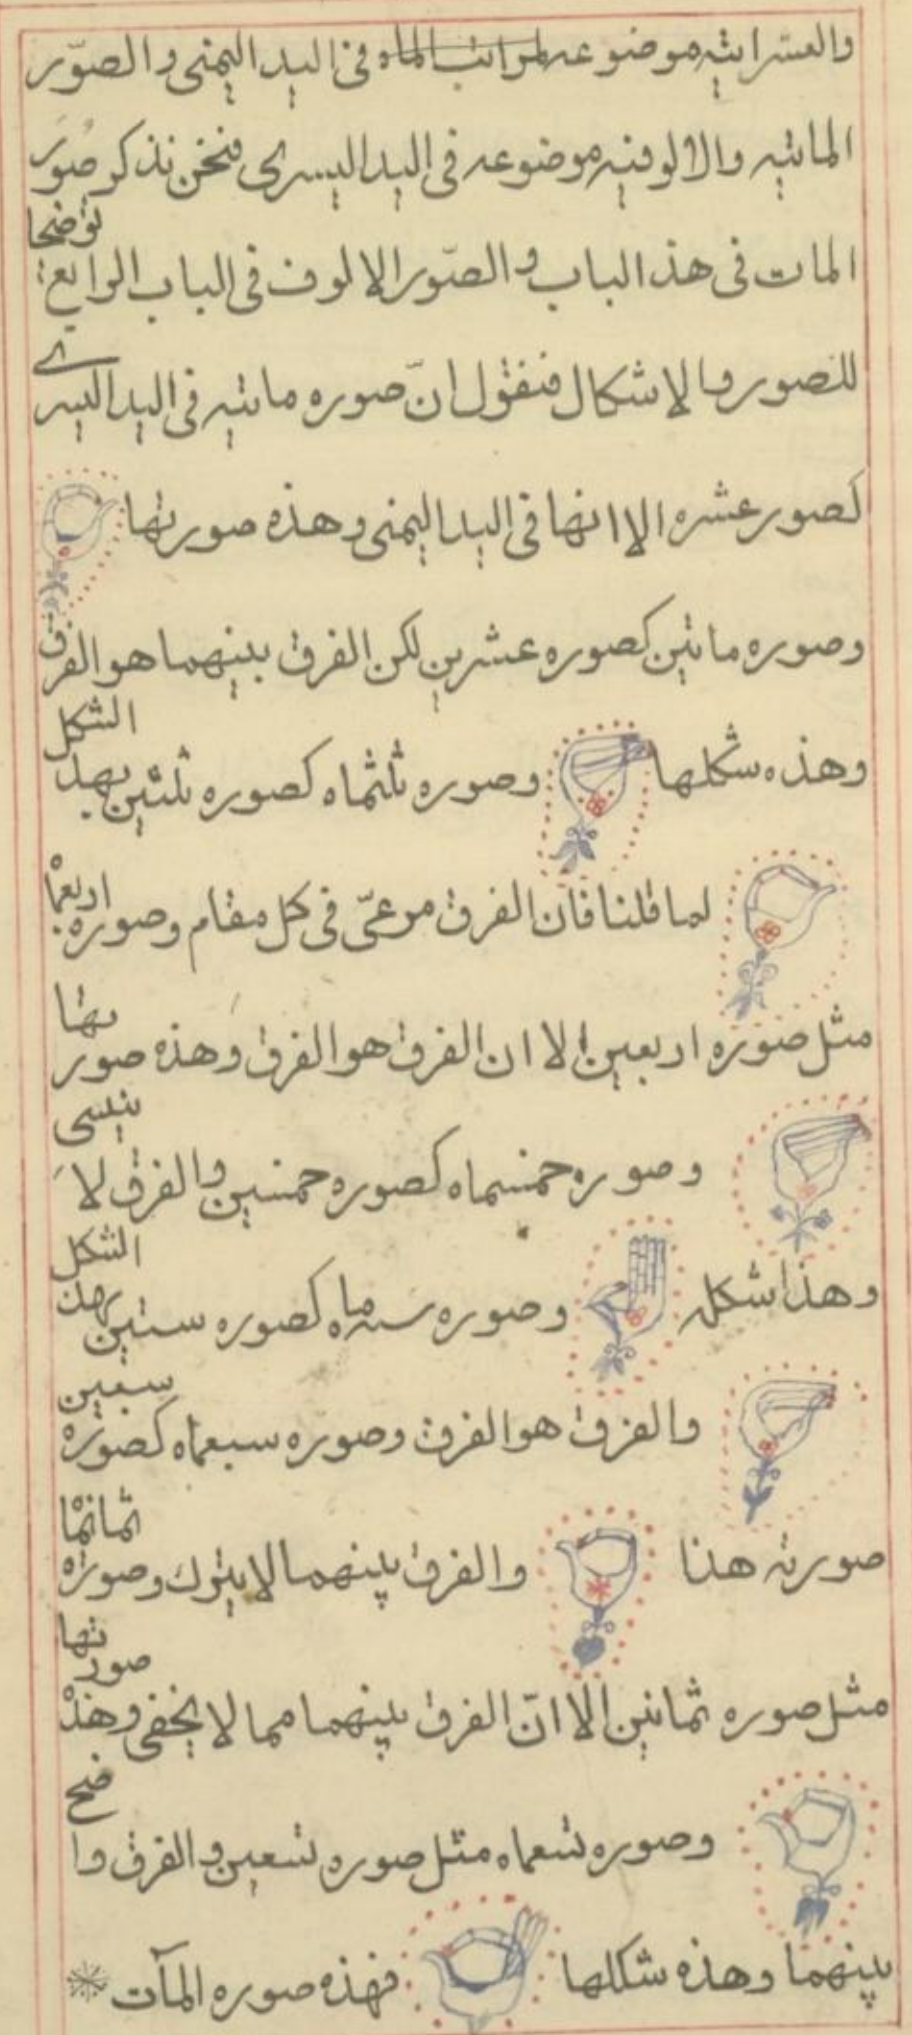 والعشراتيه موضوعه لمراتب الماه فى اليد اليمنى والصوّر
الماتيه والالوفيه موضوعه فى اليد اليسرى فنحن نذكر صُوَر
المات فى هذ الباب و الصّور الالوف فى الباب الرابع توضحا
للصور والاشكال فنقول انّ صوره ماتيه فى اليد اليسرى
كصور عشره الا انها فى اليد اليمنى وهذه صورتها
وصوره ماتين كصوره عشرين لكن الفرق بينهما هو الفرق
وهذه شكلها وصوره ثلثماه كصوره ثلثين بهذ الشكل
لما قلنا فان الفرق مرعىّ فى كل مقام وصوره اربعما
مثل صوره اربعين الا ان الفرق هو الفرق وهذه صورتها
وصوره خمسماه كصوره خمسين والفرق لا ينسى
وهذا شكله وصوره ستماه كصوره ستين بهذ الشكل
والفرق هو الفرق وصوره سبعماه كصوره سبعين
صورته هذا والفرق بينهما لا يترك وصوره ثمانما
مثل صوره ثمانين الا انّ الفرق بينهما مما لا يخفى وهذه صورتها
وصوره تسعماه مثل صوره تسعين والفرق واضح
بينهما وهذه شكلها فهذه صوره المآت